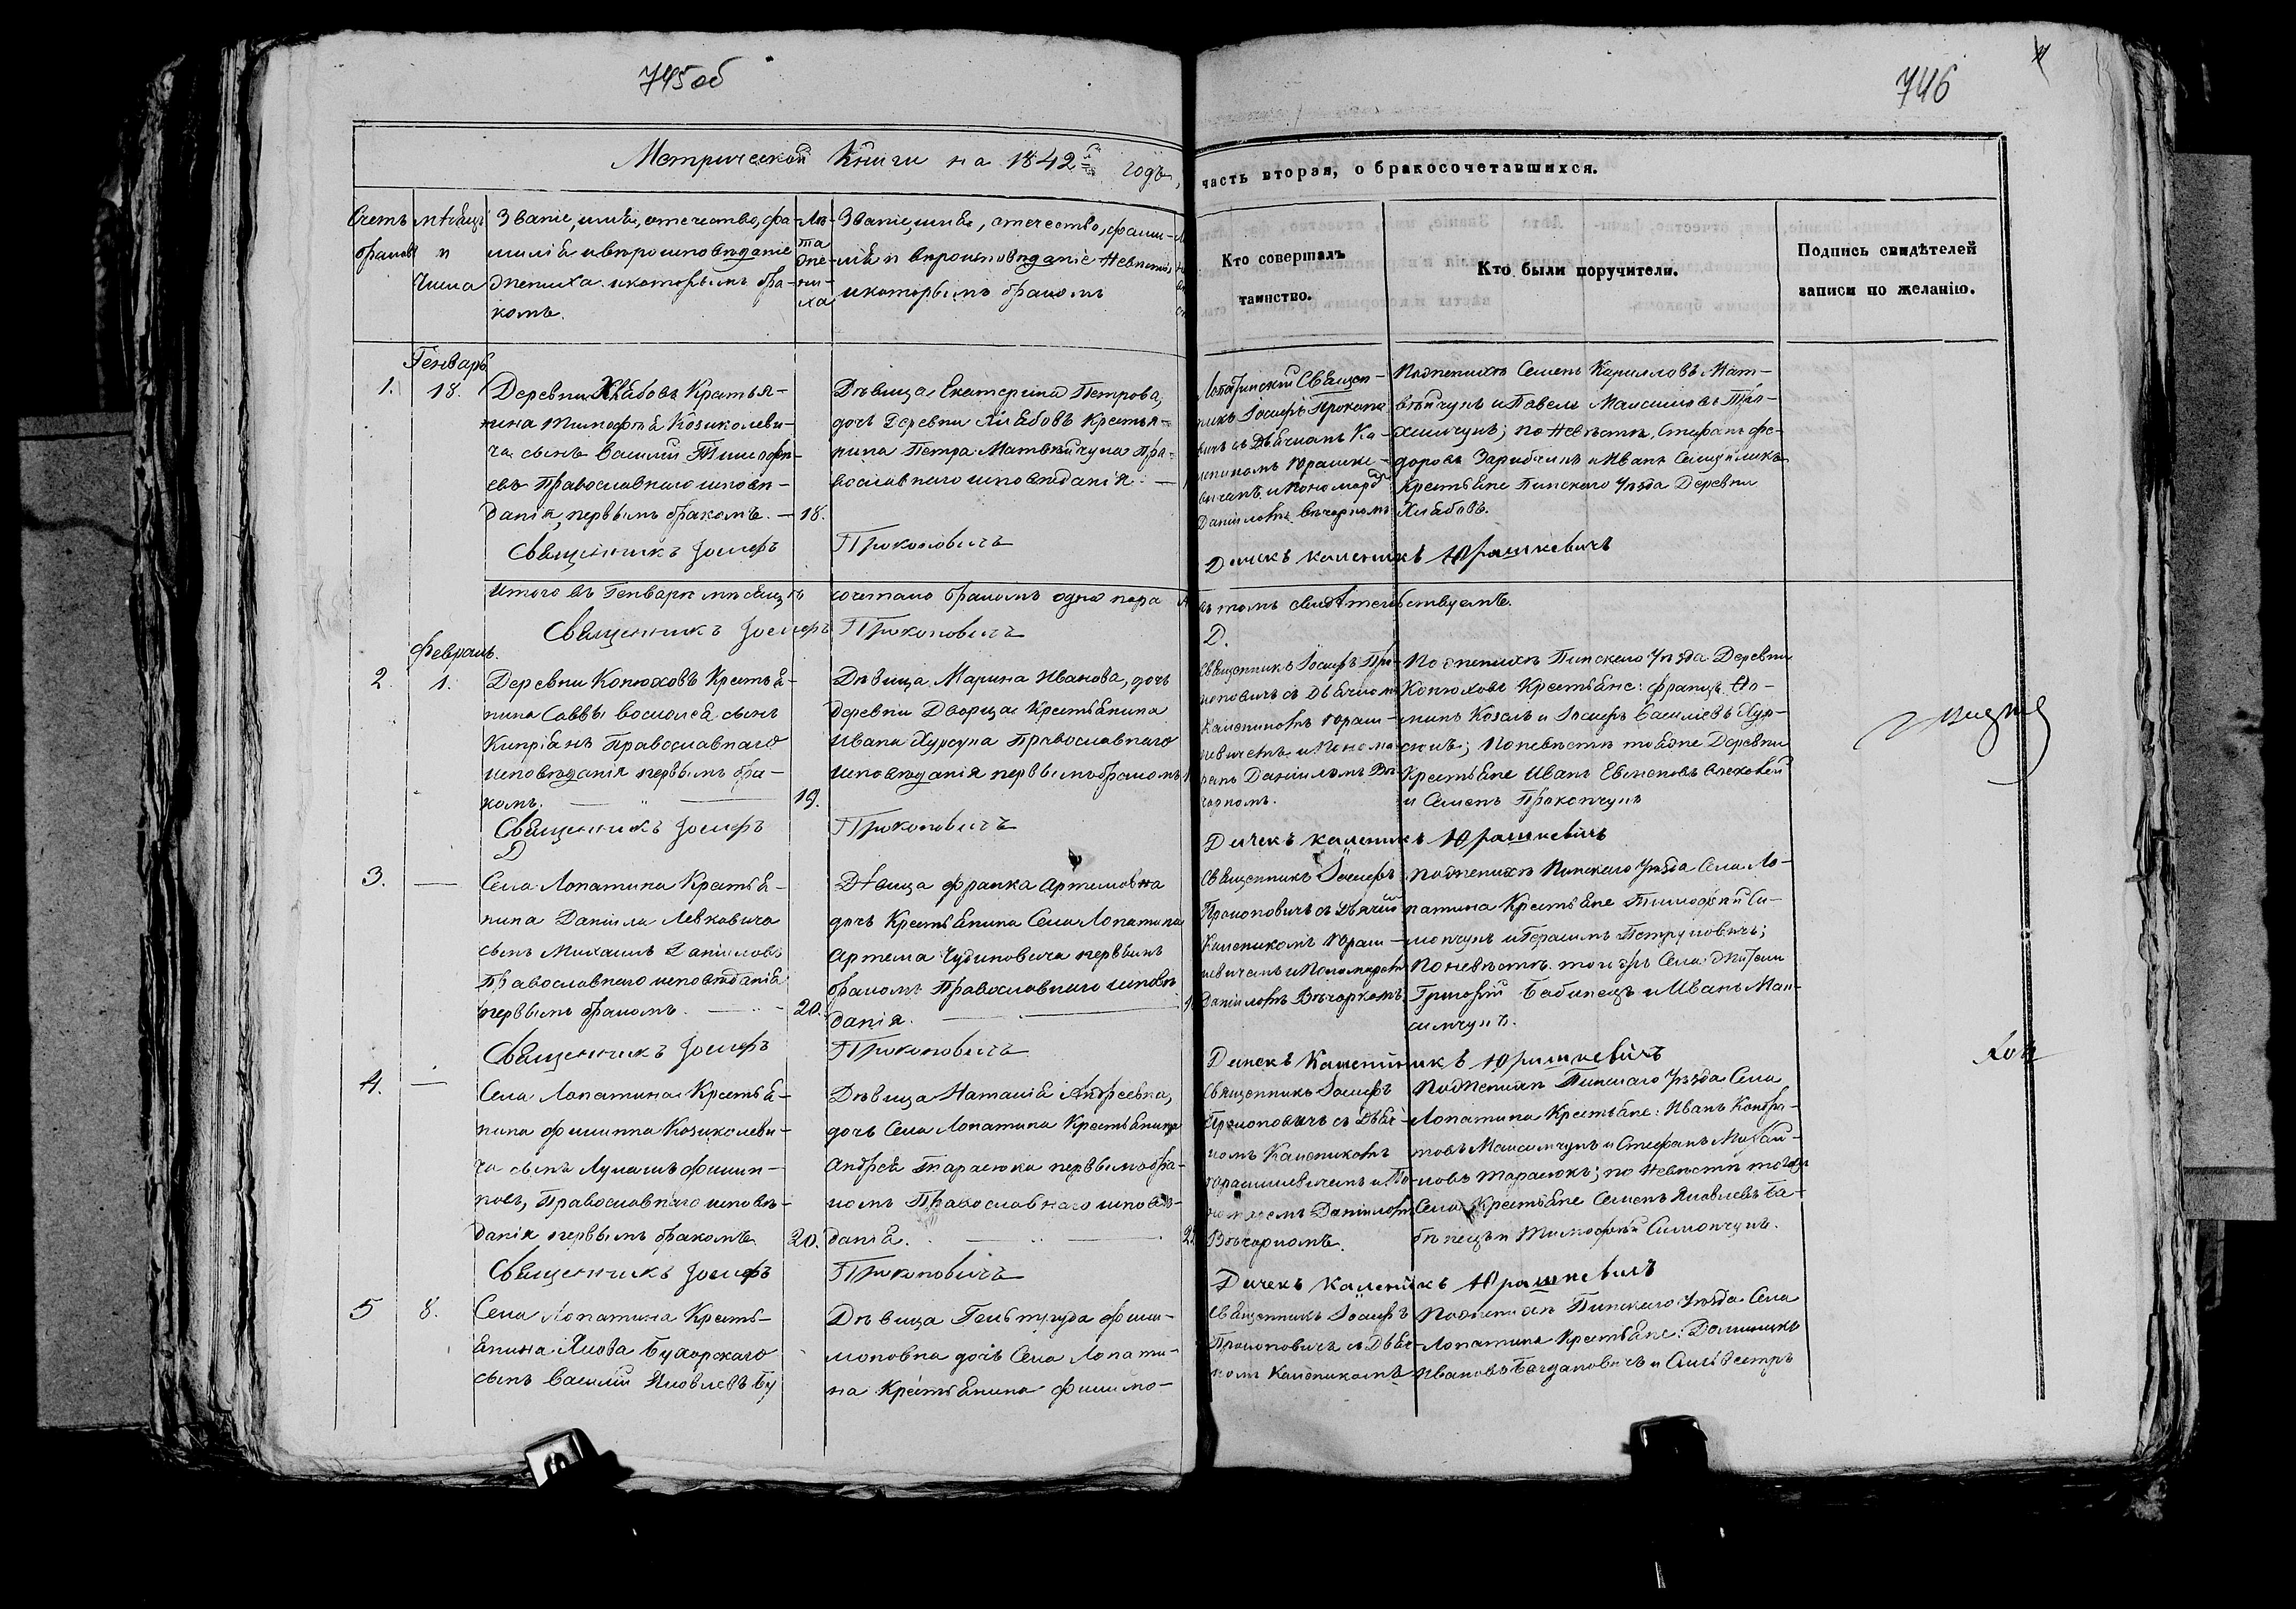 745об
746
Метрической Книги на 1842й годъ,
часть вторая, о бракосочетавшихся.
Счетъ
браковъ
Мѣсяцъ
и
Числа
Званіе, имя, отечество, фа-
милія и вѣроисповѣданіе
жениха и которымъ бра-
комъ.
Лѣ-
та
же-
ни-
ха
Званіе, имя, отечество, фами-
лія и вѣроисповѣданіе Невѣсты
и которымъ бракомъ
Кто совершалъ
таинство.
Кто были поручители.
Подпись свидѣтелей
записи по желанію.
Генварь
1.
18.
Деревни Хлябовъ Крестья-
нина Тимофея Козиколеви-
ча сынъ Василий Тимофе-
евъ Православнаго исповѣ-
данія, первымъ бракомъ.
18.
Дѣвица Екатерина Петрова,
дочь Деревни Хлябовъ Крестья-
нина Петра Матвѣйчука Пра-
вославнаго исповѣданія.
Лопатинский Священ-
никъ Іосифъ Прокопо
вичъ съ Дьячкомъ Ка-
леникомъ Юрашке-
вичемъ и Пономаремъ
Даніиломъ Вечоркомъ
По женихѣ Семенъ Кирилловъ Мат-
вѣйчукъ и Павелъ Максимовъ
по Невѣстѣ, Стефанъ Фе-
доровъ и Иванъ
Крестьяне Пинскаго Уѣзда Деревни
Хлябовъ.
Священникъ Іосифъ Прокоповичъ
Дячекъ Каленикъ Юрашкевичъ
Итого въ Генварѣ мѣсяцѣ сочетано бракомъ одна пара
въ томъ свидѣтельствуемъ.
Священникъ Іосифъ Прокоповичъ
Д.
Февраль.
2.
1.
Деревни Конюховъ Крестья-
нина Саввы сынъ
Кипріанъ Православнаго
исповѣданія первымъ бра-
комъ.
19.
Дѣвица Марина Иванова, дочь
деревни Дворца Крестьянина
Ивана Хурсука Православнаго
исповѣданія первымъ бракомъ
Священникъ Іосифъ Про-
коповичъ съ Дьячкомъ
Каленикомъ Юраш-
кевичемъ и Понома-
ремъ Даніиломъ Ве-
чоркомъ.
По женихѣ Пинскаго Уѣзда Деревни
Конюховъ Крестьяне: Францъ
Козакъ и Іосифъ Василіевъ Хур-
сикъ; По невѣстѣ тоя же Деревни
Крестьяне Иванъ
и Семенъ Прокопчукъ
Священникъ Іосифъ Прокоповичъ
Дячекъ Каленикъ Юрашкевичъ
Д
3.
Села Лопатина Крестья-
нина Даніила Левковича
сынъ Михаилъ Даніиловъ
Православнаго исповѣданія
первымъ бракомъ.
20.
Дѣвица Франка Артемовна
дочь Крестьянина Села Лопатина
Артема Чудиновича первымъ
бракомъ Православнаго исповѣ-
данія.
Священникъ Іосифъ
Прокоповичъ съ Дьячкомъ
Каленикомъ Юраш-
кевичемъ и Пономаремъ
Даніиломъ Вечоркомъ.
По женихѣ Пинскаго Уѣзда Села Ло-
патина Крестьяне Тимофей Си-
мончукъ и Герасимъ Петруковичъ;
По невѣстѣ того жъ Села жители
Григорій Бабинецъ и Иванъ Мак-
симчукъ.
Священникъ Іосифъ Прокоповичъ
Дячекъ Каленикъ Юрашкевичъ
4.
Села Лопатина Крестья-
нина Филиппа Козиколеви-
ча сынъ Лукашъ Филип-
повъ, Православнаго исповѣ-
данія первымъ бракомъ
20.
Дѣвица Наталія Андреевна,
дочь Села Лопатина Крестьянина
Андрея Тарасюка первымъ бра-
комъ Православнаго исповѣ-
данія.
Священникъ Іосифъ
Прокоповичъ съ Дьяч-
комъ Каленикомъ
Юрашкевичемъ и По-
номаремъ Даніиломъ
Вечоркомъ.
По женихѣ Пинскаго Уѣзда Села
Лопатина Крестьяне: Иванъ Кондра-
товъ Максимчукъ и Стефанъ Михай-
ловъ Тарасюкъ; по Невѣстѣ того жъ
Села Крестьяне Семенъ Яковлевъ Ба-
бинецъ и Тимофей Симончукъ.
Священникъ Іосифъ Прокоповичъ
Дячекъ Каленикъ Юрашкевичъ
5
8.
Села Лопатина Кресть-
янина Якова Бухорскаго
сынъ Василій Яковлевъ Бу
Дѣвица Гельтруда Фили-
моновна дочь Села Лопати-
на Крестьянина Филимо-
Священникъ Іосифъ
Прокоповичъ съ Дьяч-
комъ Каленикомъ
По женихѣ Пинскаго Уѣзда Села
Лопатина Крестьяне: Доминикъ
Ивановъ Богдановичъ и Сильвестръ